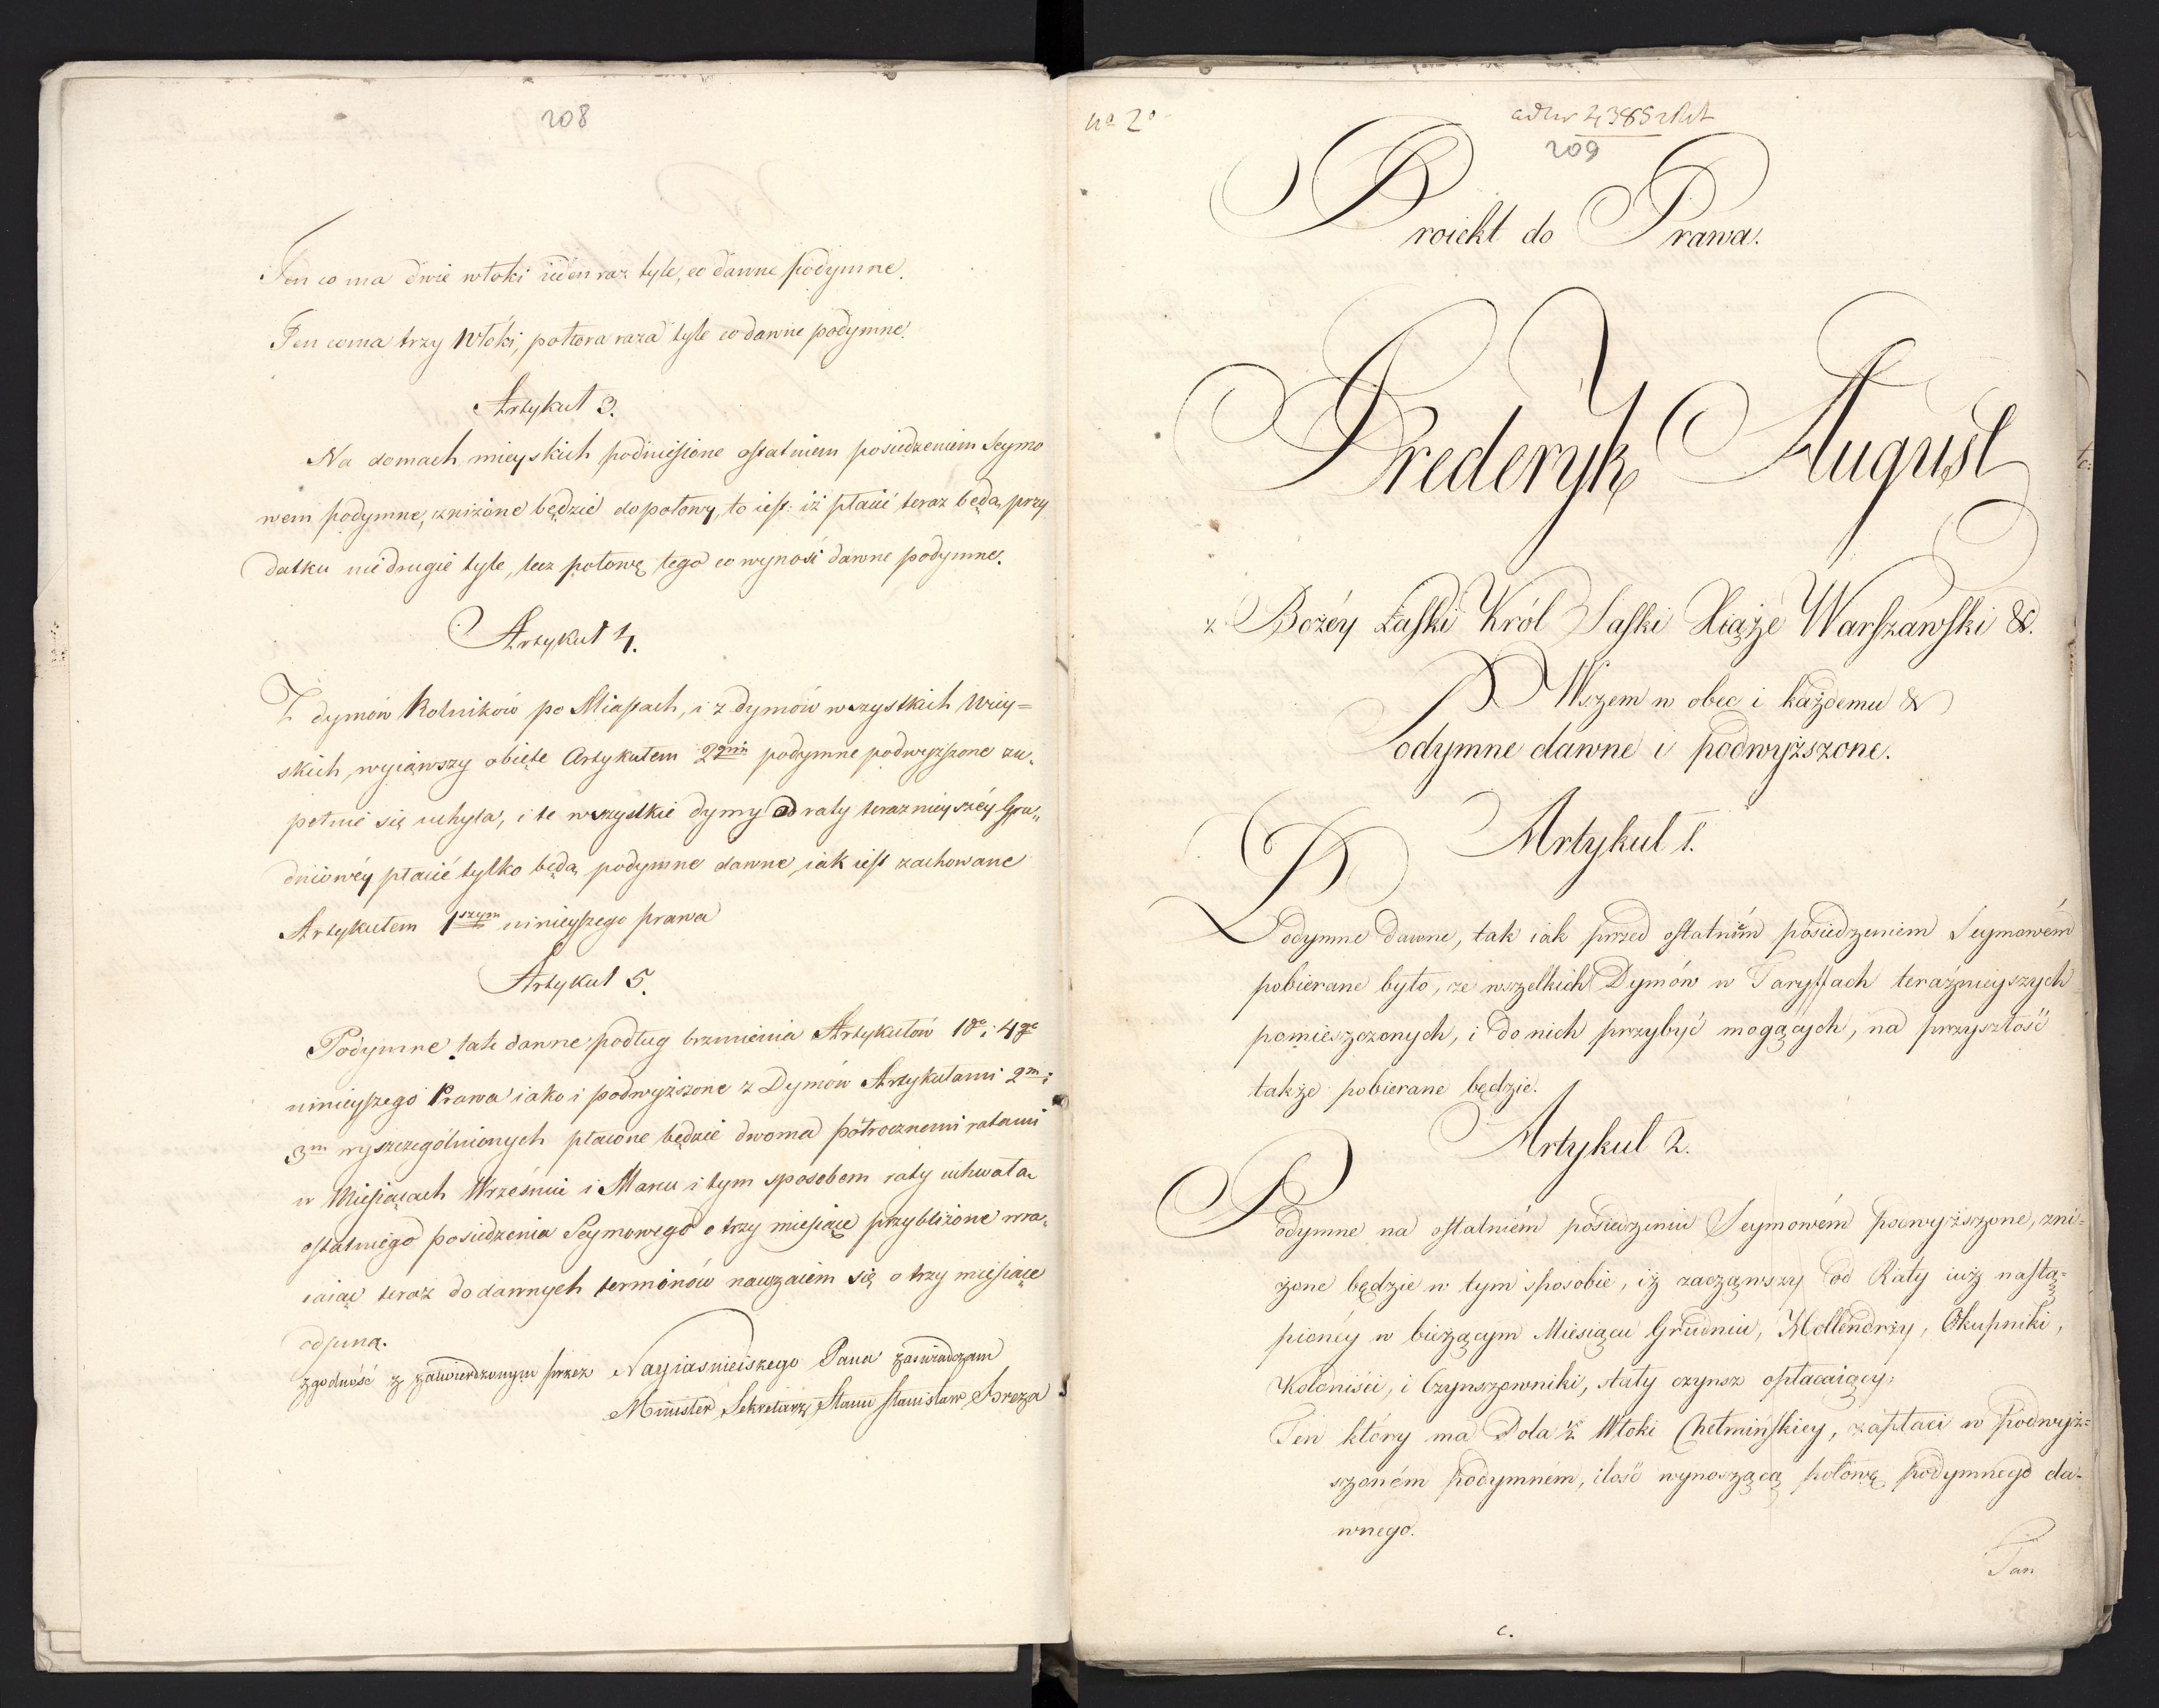 208
Ten co ma dwie włoki ieden raz tyle, co dawne podymne.
Ten co ma trzy Włoki, półtora raza tyle co dawne podymne.
Artykuł 3.
Na domach mieyskich podniesione ostatniem posiedzeniem Seymo
wem podymne, zniżone będzie do połowy, to iest: iż płacić teraz będą przy
datku nie drugie tyle, lecz połowę tego co wynosi dawne podymne.
Artykuł 4.
Z dymów Rolników po Miastach, i z dymów wszystkich Wiey=
skich, wyiąwszy obięte Artykułem 2gim podymne podwyższone zu„
pełnie się uchyla, i te wszystkie dymy od raty teraznieyszéy Gru„
dniowéy płacić tylko będą podymne dawne, iak iest zachowane
Artykułem 1szym ninieyszego prawa
Artykuł 5.
Podymne tak dawne podług brzmienia Artykułów 1go i 4go
ninieyszego Prawa iako i podwyższone z Dymów Artykułami 2m i
3m wyszczególnionych płacone będzie dwoma półrocznemi ratami
w Miesiącach Wrześniu i Marcu i tym sposobem raty uchwałą
ostatniego posiedzenia Seymowego o trzy miesiące przybliżone wra„
caiąc teraz do dawnych terminów nawzaiem się o trzy miesiące
odsuną.
zgodność z zatwierdzonym przez Nayiasnieiszego Pana zaswiadczam
Minister Sekretarz Stanu Stanisław Breza
No 2o
ad Nr 4385
209
Proiekt do Prawa.
Frederyk August
z Bożéy Łaski Król Saski Xiąże Warszawski &.
Wszem w obec i każdemu &
Podymne dawne i podwyższone.
Artykuł 1.
Podymne dawne, tak iak przed ostatnim posiedzeniem Seymowém
pobierane było, ze wszelkich Dymów w Taryffach teraźnieyszych
pomieszczonych, i do nich przybyć mogących, na przyszłość
także pobierane będzie.
Artykuł 2.
Podymne na ostatniém posiedzeniu Seymowém podwyższone, zni=
żone będzie w tym sposobie, iż zacząwszy od Raty iuż nastą=
pionéy w bieżącym Miesiącu Grudniu, Hollendrzy, Okupniki,
Koloniści, i Czynszowniki, stały czynsz opłacaiący:
Ten który ma Pola ½ Włoki Chełmińskiey, zapłaci w podwyż=
szoném podymném, ilość wynoszącą połowę podymnego da=
wnego.
Ten
c.